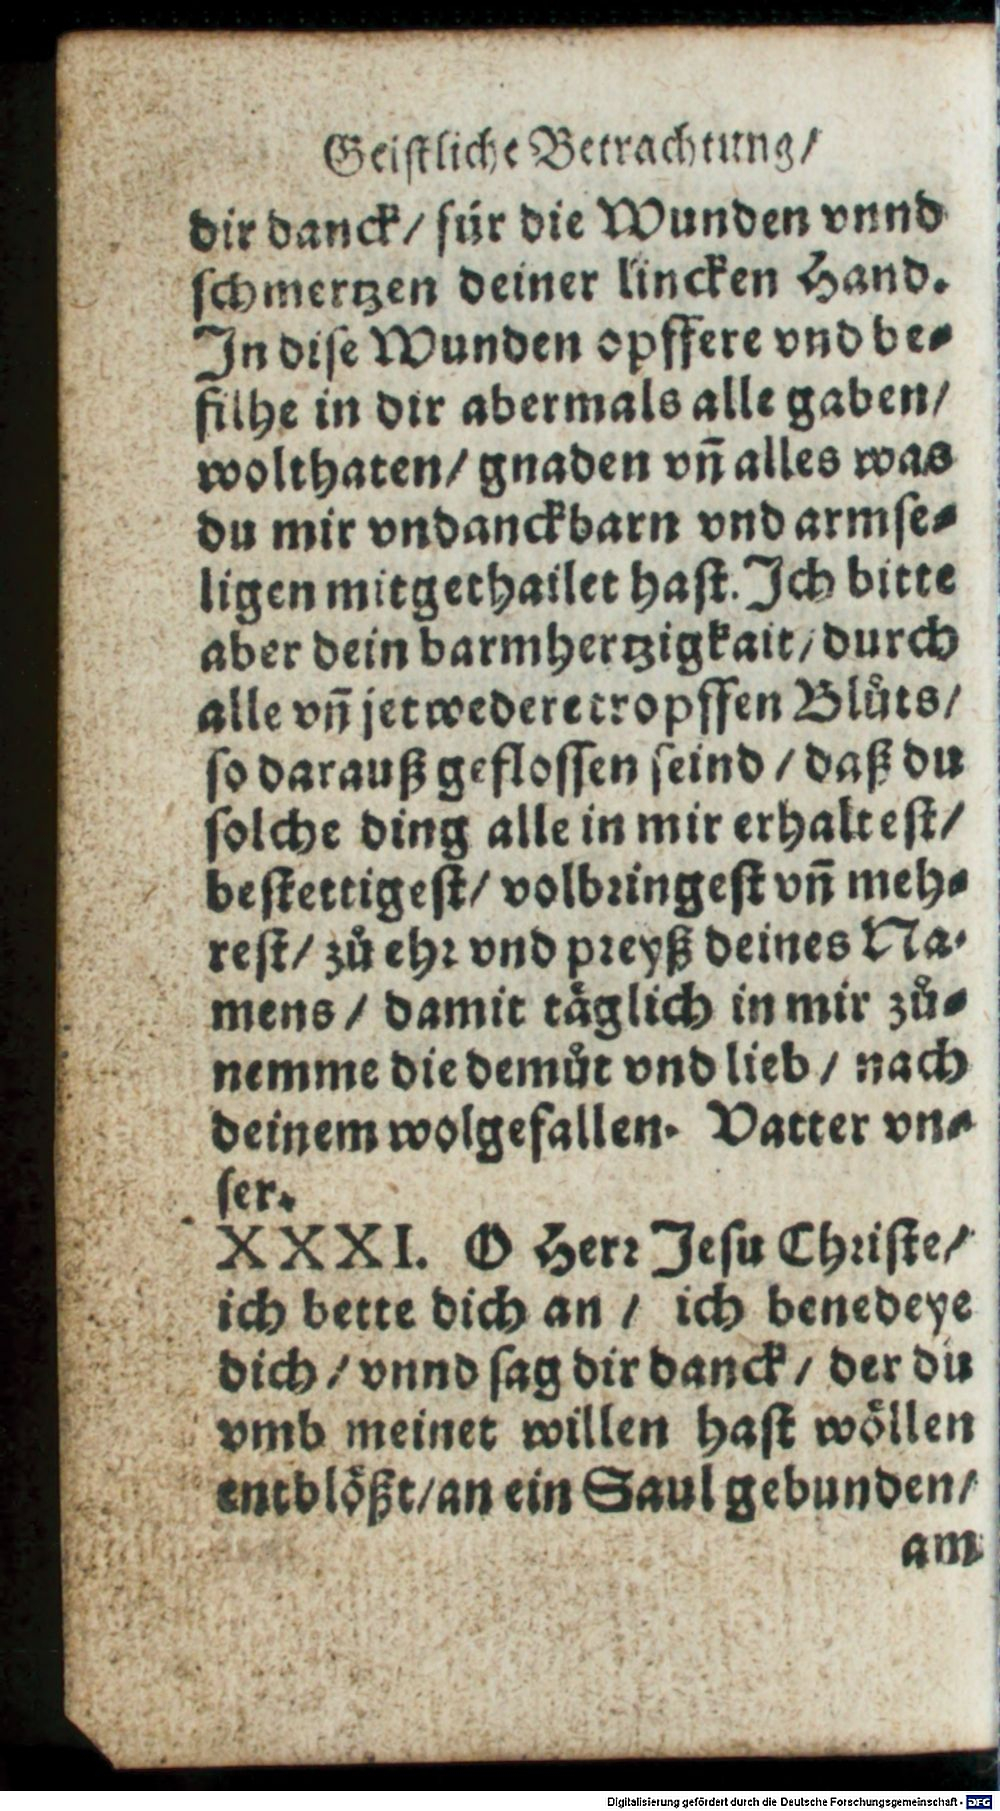 Geistliche Betrachtung/
dir danck/ für die Wunden vnnd
schmertzen deiner lincken Hand.
In dise Wunden opffere vnd be-
filhe in dir abermals alle gaben/
wolthaten/ gnaden vn̄ alles was
du mir vndanckbarn vnd armse-
ligen mitgethailet hast. Ich bitte
aber dein barmhertzigkait/ durch
alle vn̄ jetwedere tropffen Blůts/
so darauß geflossen seind / daß du
solche ding alle in mir erhaltest/
bestettigest/ volbringest vn̄ meh-
rest/ zů ehr vnd preyß deines Na-
mens / damit täglich in mir zů-
nemme die demůt vnd lieb / nach
deinem wolgefallen. Vatter vn-
ser.
XXXI. O Herr Jesu Christe/
ich bette dich an / ich benedeye
dich / vnnd sag dir danck / der du
vmb meinet willen hast wöllen
entblößt/ an ein Saul gebunden/
am
Digitalisierung gefördert durch die Deutsche Forschungsgemeinschaft - DFG